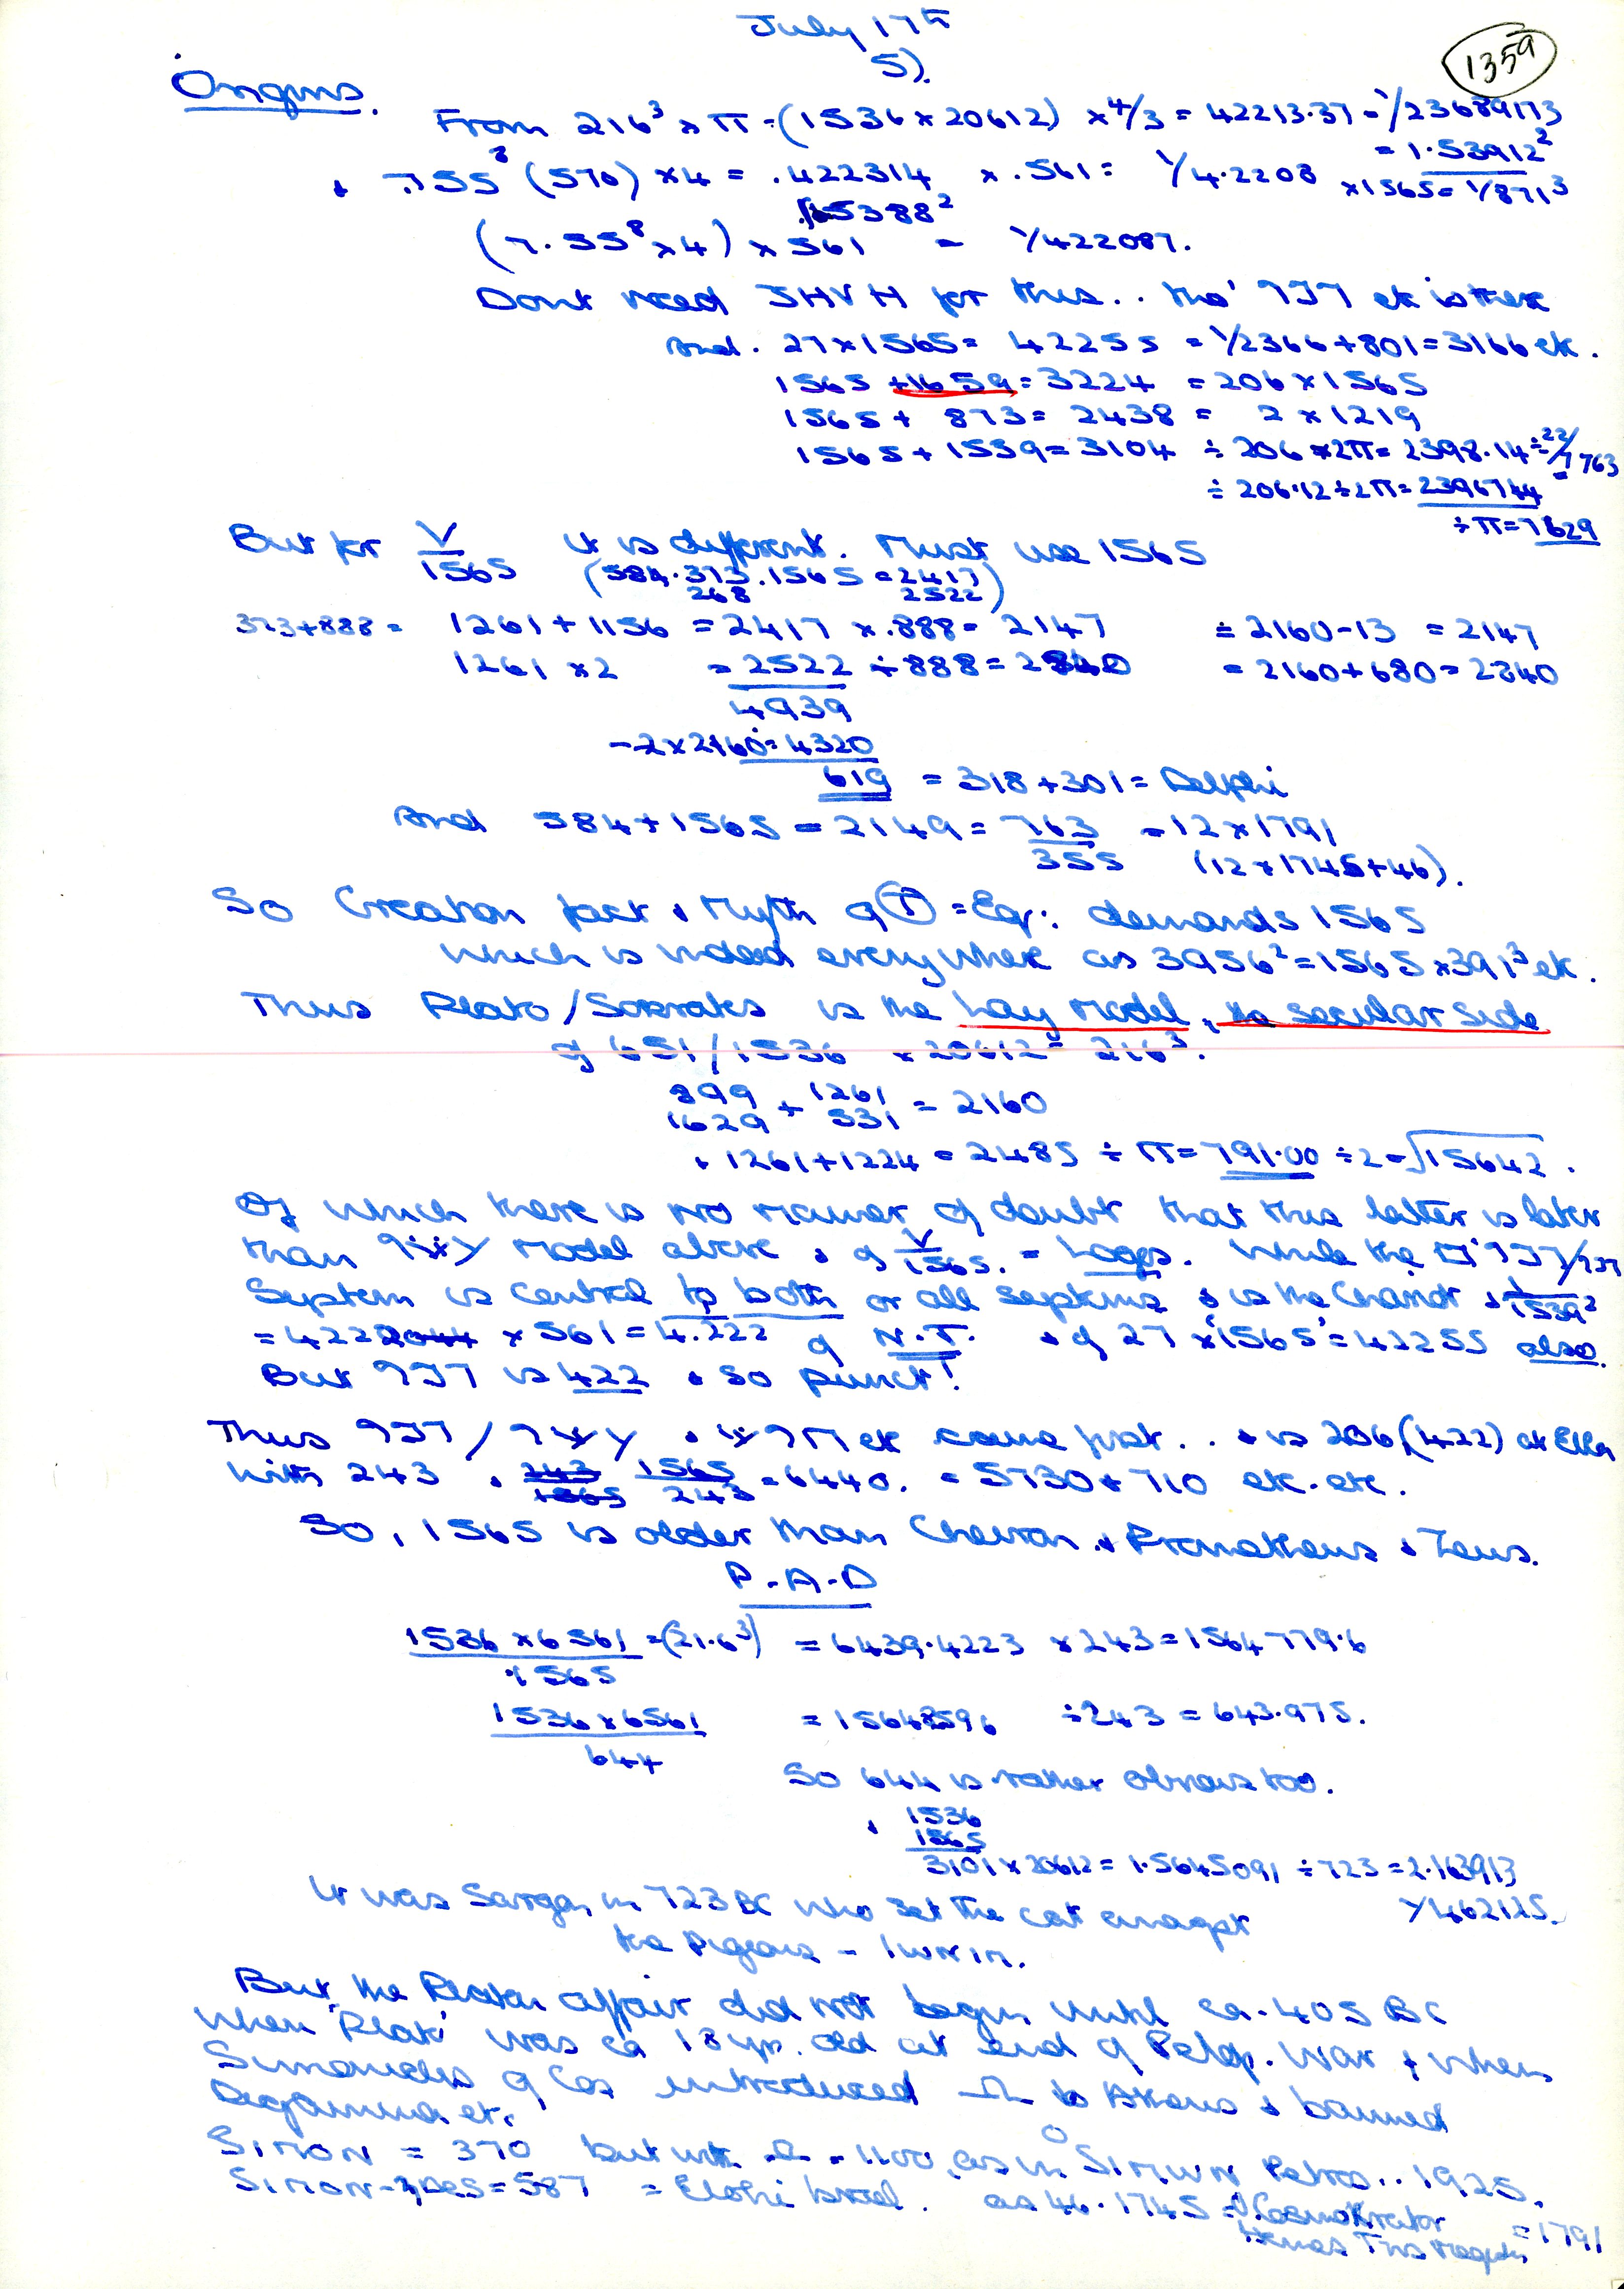 July 17th
5).
1359
Origins. From 216³ × π = (1536 × 20612) × 4/3 = 42213.37 = 1/23689173
= 1.53912²
& 7.55⁸ (570) × 4 = .422314 × .561 = 1/4.2208 × 1565 = 1/871³
.15388²
(7.55⁸ × 4) × 561 = 1/422087.
Dont need JHVH for this.. tho' 737 etc is there
And. 27 × 1565 = 42255 = 1/2366 + 801 = 3166 etc.
1565 + 1659 = 3224 = 206 × 1565
1565 + 873 = 2438 = 2 × 1219
1565 + 1539 = 3104 ÷ 206 × 2π = 2398.14 ÷ 22/7 = 763
÷ 206.12 ÷ 2π = 2396744
÷ π = 7629
But for V/1565 it is different. Must use 1565
(584.373.1565 = 2417
268 2522)
373 + 888 = 1261 + 1156 = 2417 × .888 = 2147 = 2160 - 13 = 2147
1261 × 2 = 2522 ÷ 888 = 2840 = 2160 + 680 = 2840
4939
- 2 × 2160 = 4320
619 = 318 + 301 = Delphi
And 584 + 1565 = 2149 = 763/355 = 12 × 1791
(12 × 1745 + 46).
So Creation fact & Myth of T = Eq: demands 1565
which is indeed everywhere as 3956² = 1565 × 391³ etc.
Thus Plato/Sokrates is the Lay model, the secular side
of 651/1536 × 20612 = 216³.
899 + 1261 = 2160
1629 531
& 1261 + 1224 = 2485 ÷ π = 791.00 ÷ 2 = √15642.
Of which there is no manner of doubt that this latter is later
than model above & of V/1565. = Logos. While the
System is central to both or all systems & is the Chariot & 1/1539²
= 4222044 × 561 = 4.222 of N.T. & of 27 × 1565 = 42255 also.
But 737 is 422 & so punct!
Thus etc came first.. & is 206 (422) at
with 243 & 243/1565 1565/243 = 6440. = 5730 + 710 etc. etc.
So, 1565 is older than & Prometheus & Zeus.
P.A.D
1536 × 6561 = (21.6³) = 6439.4223 × 243 = 1564779.6
1565
1536 × 6561 = 15648596 ÷ 243 = 643.975.
644
So 644 is rather obvious too.
& 1536
1565
3101 × 20612 = 1.5645091 ÷ 723 = 2.163913
1/462125.
It was Sargon in 723 BC who set the cat amongst
the pigeons -
But the Platon affair did not begin until ca. 405 BC
when 'Plato' was ca 18 yrs. old at end of Pelop. War & when
Simonides of Cos introduced Ω to Athens & banned
Degamma etc.
Simon = 370 but with Ω = 1100, as in Simwn Petros.. 1925.
Simon-ηdes = 587 = Elohi Israel. as 46.1745 = Ο Cosmokrator = 1791
Hermes Tris megistos